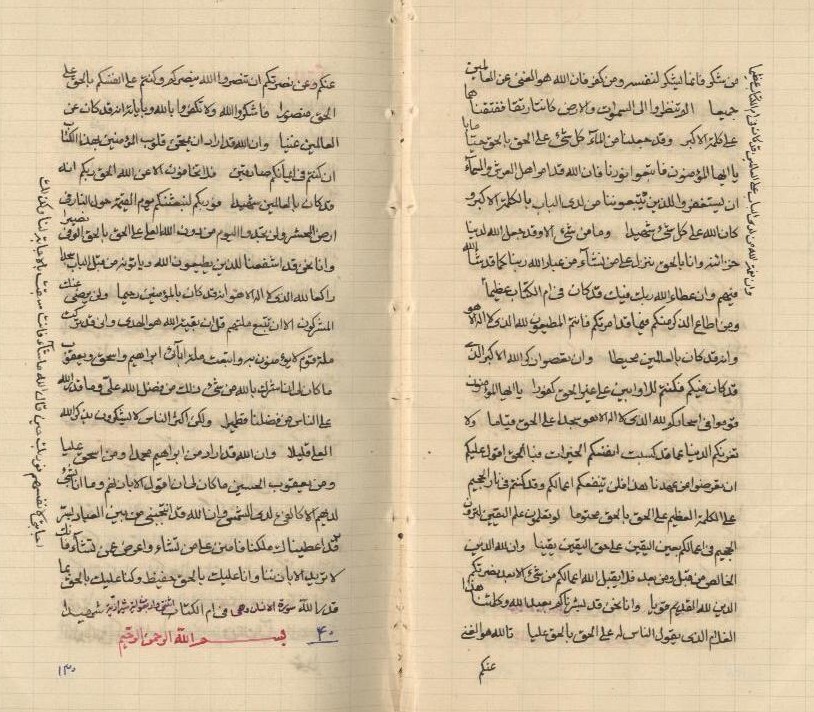 من شكر فانما ليشكر لنفسه ومن كفر فان الله هو الغني عن العالمين
جميعا الم تنظروا الى السموات والارض كانتا رتقا ففتقنا
على كلمة الاكبر وقد جعلنا من الماء كل شيء على الحق بالحق
يا ايها المؤمنون فاتبعوا نورنا فان الله قد امر اهل العرش والسماء
ان يستغفروا للذين يتبعوننا من لدى الباب بالكلمة الاكبر و
كان الله على كل شيء شهيدا وما من شيء الا وقد جعل الله لدينا
وانا بالحق ننزله على من نشاء من عباد الله ربنا كما قد شاء الله
فيهم وان عطاء الله ربك فيك قد كان في ام الكتاب عظيما
ومن اطاع الذكر منكم فيما قد امرتكم فانتم المطيعون لله الذي لا اله الا هو
وانه قد كان بالعالمين محيطا وان ذكر الله الاكبر الذي
قد كان فيكم على عهد الحق كفورا يا ايها المؤمنون
قوموا في اسحاركم لله الذي لا اله الا هو سجدا على الحق وقياما ولا
تغرنكم الدنيا بما قد كسبت انفسكم الخيرات اقول عليكم
ان تعرضوا من بعدنا بهذا فلن ينفعكم اعمالكم وقد كنتم في نار الجحيم
على الكلمة العظيم على الحق بالحق محتوما لو تعلمون علم اليقين لترون
الجحيم في اعمالكم بعين اليقين على حق اليقين يقينا وان لله الدين
الخالص من قبل ومن بعد فلن يقبل الله اعمالكم من شيء الا بعد نصرتكم
الدين لله القديم قويا وانا نحن قد نبشركم بعبد الله وكلمتنا هذا
الغلام الذي يقول الناس له على الحق بالحق عليا تالله هو الغني
عنكم
عنكم وعن نصرتكم ان تنصروا الله ينصركم وكنتم على انفسكم بالحق على
الحق منصورا فاشكروا الله ولا تكفروا بالله وباياته انه قد كان عن
العالمين غنيا وان الله قد اراد ان يمحق قلوب المؤمنين بهذا الكتاب
ان كنتم في ايمانكم صادقين فلا تخافون الا عن الله الحق ربكم انه
قد كان بالعالمين شهيدا فوربكم لنحشرنكم يوم القيمة حول النار في
ارض المحشر ولن تجدوا اليوم من دون الله العلي على الحق بالحق الوفي نصيرا
وانا نحن قد اشفعنا للذين يطيعون الله وياتونه من قبل الباب سجدا
راكعا لله الذي لا اله الا هو انه قد كان بالمؤمنين رحيما ولن يرضى عنك
المشركون الا ان تتبع ملتهم قل ان بقية الله هو الهدى واني قد تركت
ملة قوم لا يؤمنون به واتبعت ملة ابائي ابراهيم واسحق ويعقوب
ما كان لي ان اشرك بالله من شيء ذلك من فضل الله علي وما قدر الله
على الناس من فضلنا قطميرا ولكن اكثر الناس لا يشكرون بذكر الله
العلي قليلا وان الله قد اراد من ابراهيم محمدا ومن اسحق عليا
ومن يعقوب الحسين ما كان لي ان اقول الا باذنهم وما انا بشيء
لديهم الا كالفيء لدى الشمس وان الله قد انتجبني من بين العباد
قد اعطيناك ملكنا فامنن على من تشاء واعرض عن تشاء فانك
لا تريد الا باذننا وانا عليك بالحق حفيظ وكنا عليك بالحق بما
قدر الله في ام الكتاب شهيدا
٤٠ بسم الله الرحمن الرحيم
١٣٠